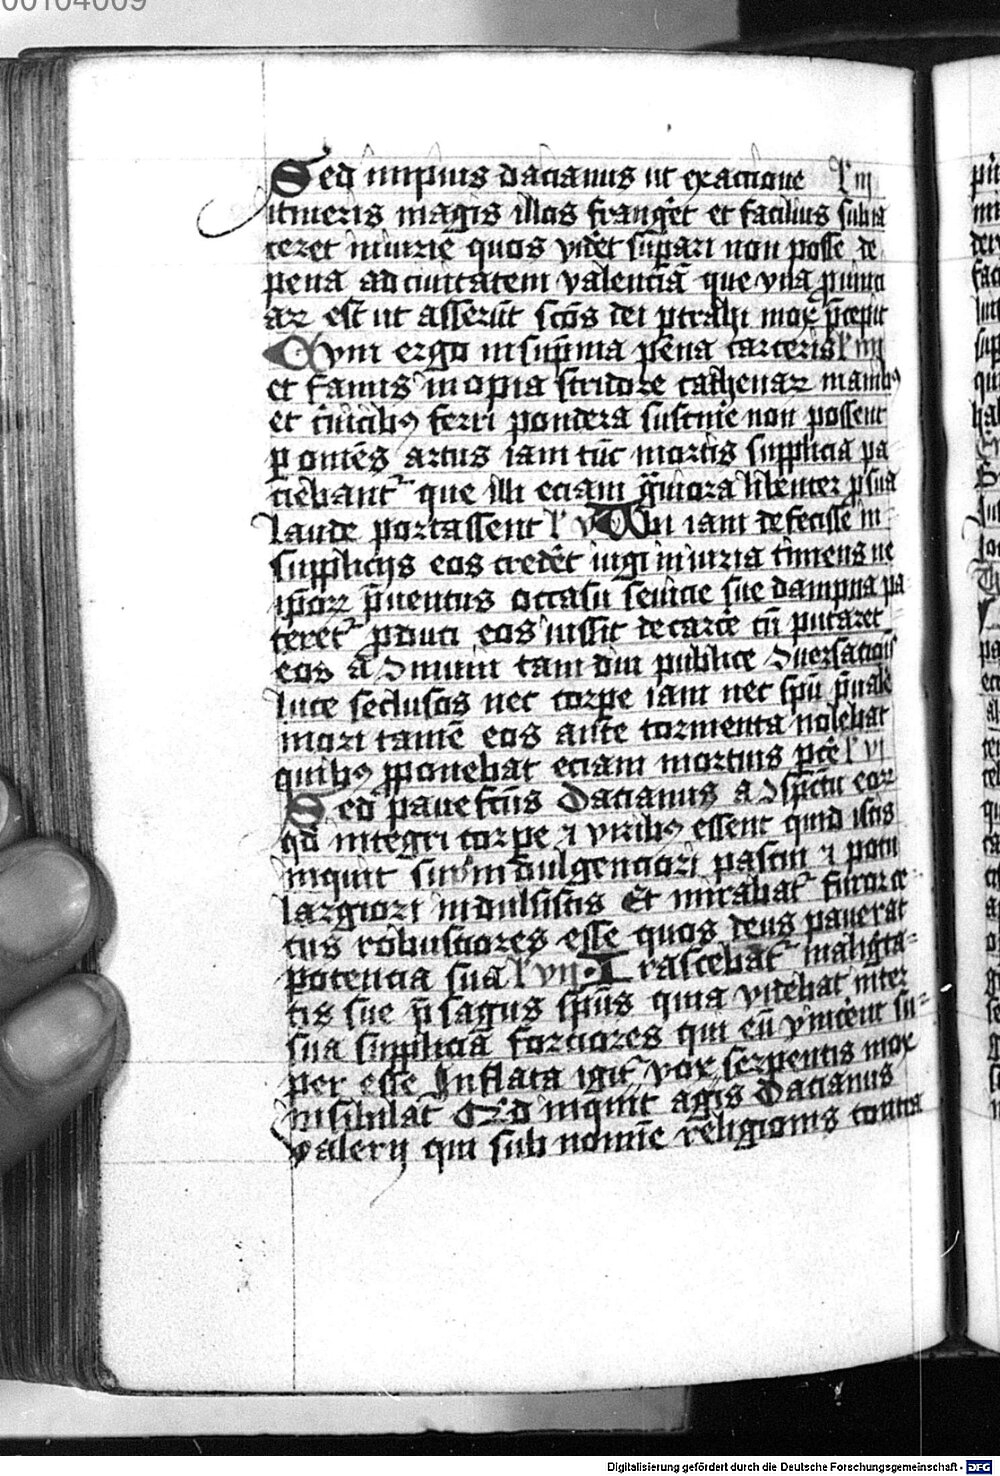 00104009
Sed impius dacianus ut exactione l' iii
itineris magis illos frang̃et et facilius subia
ceret iniurie quos vidẽt supari non posse de
pena ad ciuitatem valenciã que vna ꝓuinci
aꝝ est ut asserũt scõs dei ꝑtrahi mox p̃cepit
Cum ergo in sup̃ma pena carceris l' iiii
et famis inopia stridore cathenaꝝ manibꝰ
et c̃uicibꝰ ferri pondera sustine non possent
ꝑ omẽs artus iam tũc mortis supplicia pa
ciebantʳ que illi eciam g̃uiora libenter ꝑ sua
laude portassent l' v Qui iam defecisse in
supplicijs eos credẽt iugi iniuria timens ne
ip̃oꝝ p̃uentus occasu seuicie sue dampna pa
teretʳ ꝓduci eos iussit de carce cũ putaret
eos a ɔmuni tam diu publice ɔuersacionis
luce seclusos nec corpe iam nec spũ p̃uale
mori tamẽ eos ante tormenta nolebat
quibꝰ ꝓponebat eciam mortuis pcẽ l' vi
Sed pauefcũs Dacianus a ɔspc̃tu eoꝝ
qd̃ integri corpe ⁊ viribꝰ essent quid istis
inquit sum indulgenciori pascui ⁊ potu
largiori indulsistis Et mirabatʳ furor ce
cus robustiores esse quos deus pauerat
potencia sua l' vii Irascebatʳ maligta-
tis sue p̃sagus spũs quia videbat inter
sua suppliciã forciores qui eũ vincẽnt su-
per esse Inflata igitʳ vox serpentis mox
insibulat Qid inquit agis Dacianus
valerij qui sub nomĩe religionis contra
Digitalisierung gefördert durch die Deutsche Forschungsgemeinschaft - DFG